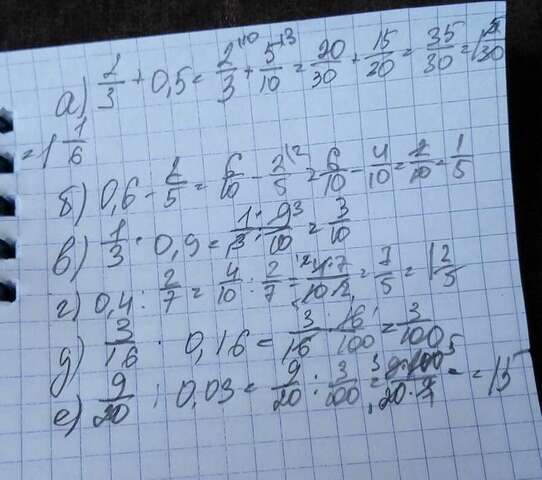 а) 2/3 + 0,5 = 2/3 + 5/10 = 20/30 + 15/20 = 35/30 = 1 5/30
= 1 1/6
б) 0,6 - 2/5 = 6/10 - 2/5 = 6/10 - 4/10 = 2/10 = 1/5
в) 1/3 · 0,9 = 1/3 · 9/10 = 3/10
г) 0,4 : 2/7 = 4/10 : 2/7 = 4·7/10·2 = 7/5 = 1 2/5
д) 3/16 · 0,16 = 3/16 · 16/100 = 3/100
е) 9/20 : 0,03 = 9/20 : 3/100 = 9·100/20·3 = = 15